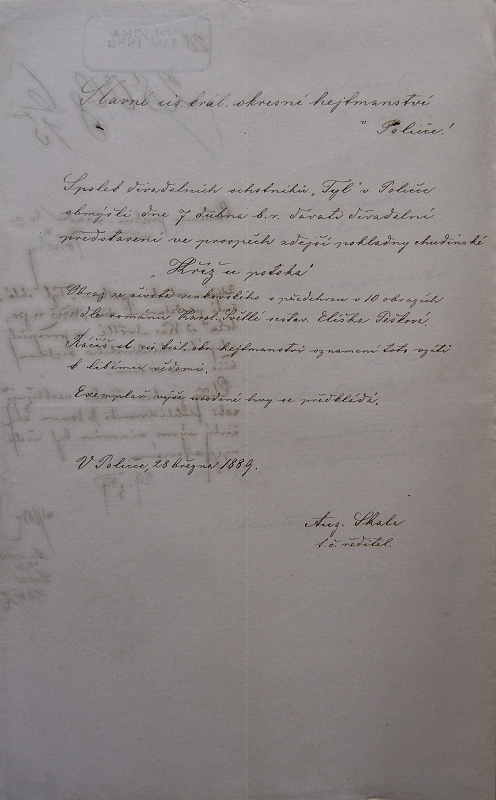 Slavné cis. král. okresní hejtmanství
v Poličce!
Spolek divadelních ochotníků „Tyl" v Poličce
obmýšlí dne 7 dubna b.r. dávati divadelní
představení ve prospěch zdejší pokladny chudinské
„Kříž u potoka"
Obraz ze života venkovského s předehrou v 10 obrazích
dle románu Karol. Světlé sestav. Eliška Pešková.
Račiž sl. cis. král. okr. hejtmanství oznámení toto vzíti
k libému vědomí.
Exemplář výše uvedené hry se předkládá.
V Poličce, 28 března 1889.
Aug. Skala
t. č. ředitel.